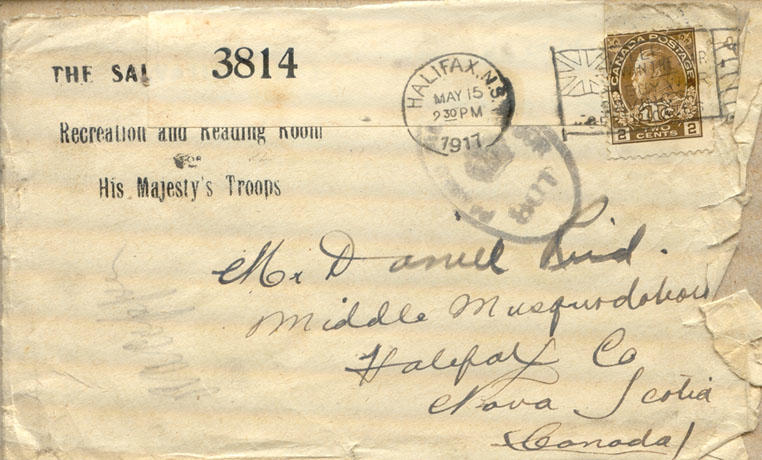 THE SAL
3814
Recreation and Reading Room
FOR
His Majesty's Troops
HALIFAX, N.S.
MAY 15
2 30 PM
1917
CANADA POSTAGE
2 TWO CENTS 2
Mr Daniel
Middle Musquodoboit
Halifax Co
Nova Scotia
Canada